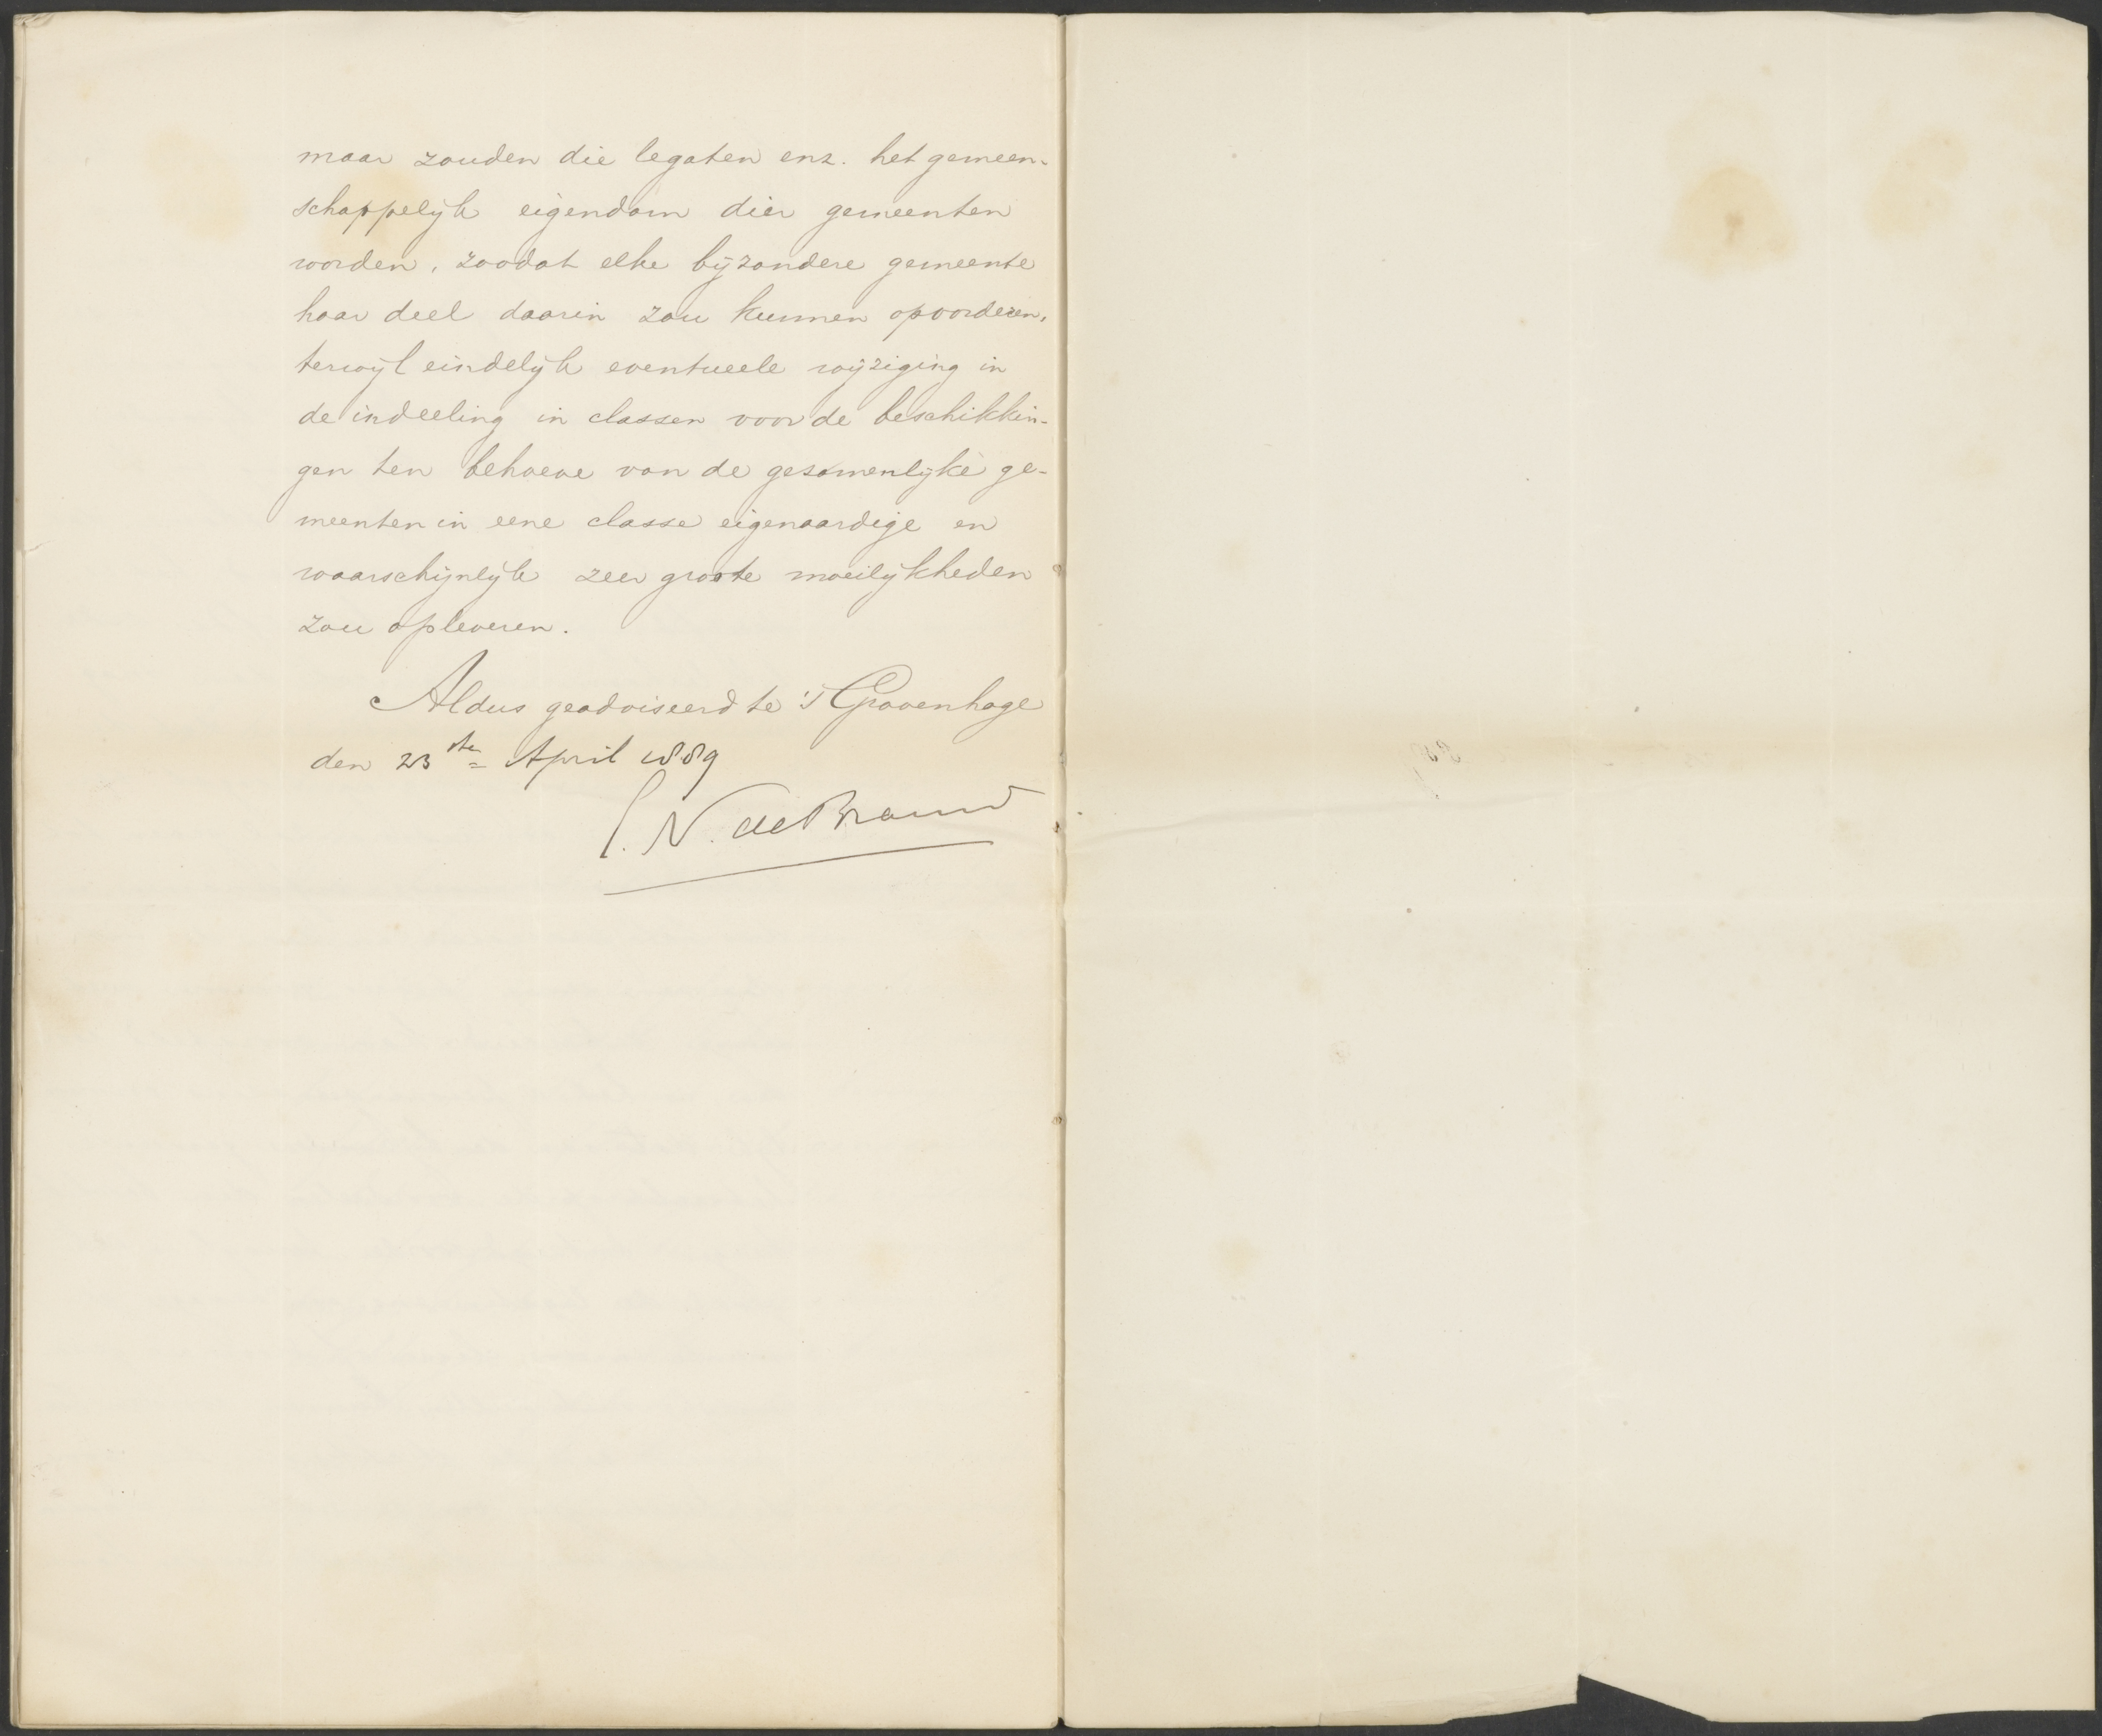 maar zouden die legaten enz. het gemeen-
schappelijk eigendom dier gemeenten
worden, zoodat elke bijzondere gemeente
haar deel daarin zou kunnen opvorderen,
terwijl eindelijk eventueele wijziging in
de indeeling in classen voor de beschikkin-
gen ten behoeve van de gezamenlijke ge-
meenten in eene classe eigenaardige en
waarschijnlijk zeer groote moeilijkheden
zou opleveren.
Aldus geadviseerd te 's Gravenhage
den 23ste April 1889
N. de Brauw